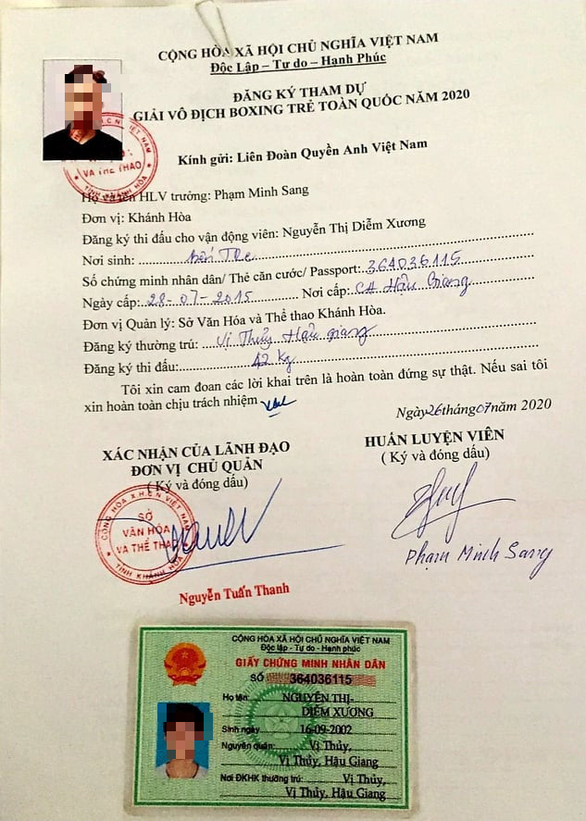 CỘNG HÒA XÃ HỘI CHỦ NGHĨA VIỆT NAM
Độc Lập – Tự do – Hạnh Phúc
ĐĂNG KÝ THAM DỰ
GIẢI VÔ ĐỊCH BOXING TRẺ TOÀN QUỐC NĂM 2020
Kính gửi: Liên Đoàn Quyền Anh Việt Nam
VÀ THỂ THAO
TỈNH KHÁNH HÒA
Họ và tên HLV trưởng: Phạm Minh Sang
Đơn vị: Khánh Hòa
Đăng ký thi đấu cho vận động viên: Nguyễn Thị Diễm Xương
Nơi sinh: Bến Tre
Số chứng minh nhân dân/ Thẻ căn cước/ Passport: 364036115
Ngày cấp: 28-07-2015 Nơi cấp: CA Hậu Giang
Đơn vị Quản lý: Sở Văn Hóa và Thể thao Khánh Hòa.
Đăng ký thường trú: Vị Thủy Hậu giang
Đăng ký thi đấu: 42 kg
Tôi xin cam đoan các lời khai trên là hoàn toàn đứng sự thật. Nếu sai tôi
xin hoàn toàn chịu trách nhiệm
Ngày 26 tháng 07 năm 2020
XÁC NHẬN CỦA LÃNH ĐẠO
ĐƠN VỊ CHỦ QUẢN
( Ký và đóng dấu)
HUẤN LUYỆN VIÊN
( Ký và đóng dấu)
CỘNG HÒA X.H.C.N VIỆT NAM
SỞ
VĂN HÓA
VÀ THỂ THAO
TỈNH KHÁNH HÒA
Phạm Minh Sang
Nguyễn Tuấn Thanh
CỘNG HÒA XÃ HỘI CHỦ NGHĨA VIỆT NAM
Độc lập - Tự do - Hạnh phúc
GIẤY CHỨNG MINH NHÂN DÂN
SỐ 364036115
Họ tên: NGUYỄN THỊ
DIỄM XƯƠNG
Sinh ngày 16-09-2002
Nguyên quán: Vị Thủy,
Vị Thủy, Hậu Giang
Nơi ĐKHK thường trú: Vị Thủy,
Vị Thủy, Hậu Giang